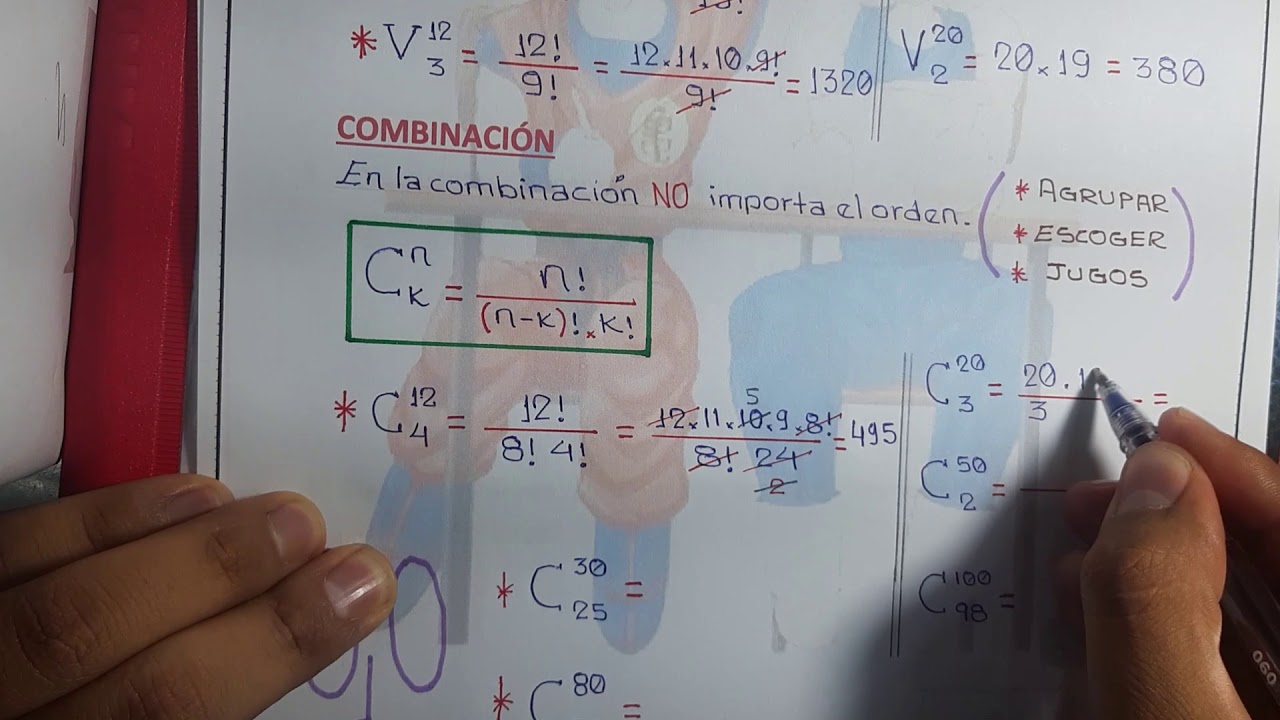 * V¹²₃ = 12!/9! = 12×11×10×9!/9! = 1320
V²⁰₂ = 20×19 = 380
COMBINACIÓN
En la combinación NO importa el orden.
* AGRUPAR
* ESCOGER
* JUGOS
Cⁿₖ = n!/(n-k)!×k!
* C¹²₄ = 12!/8! 4! = 12×11×10×9×8!/8! 24 = 495
5
2
C²⁰₃ = 20.1/3 =
C⁵⁰₂ =
C¹⁰⁰₉₈ =
* C³⁰₂₅ =
* C⁸⁰ =
060